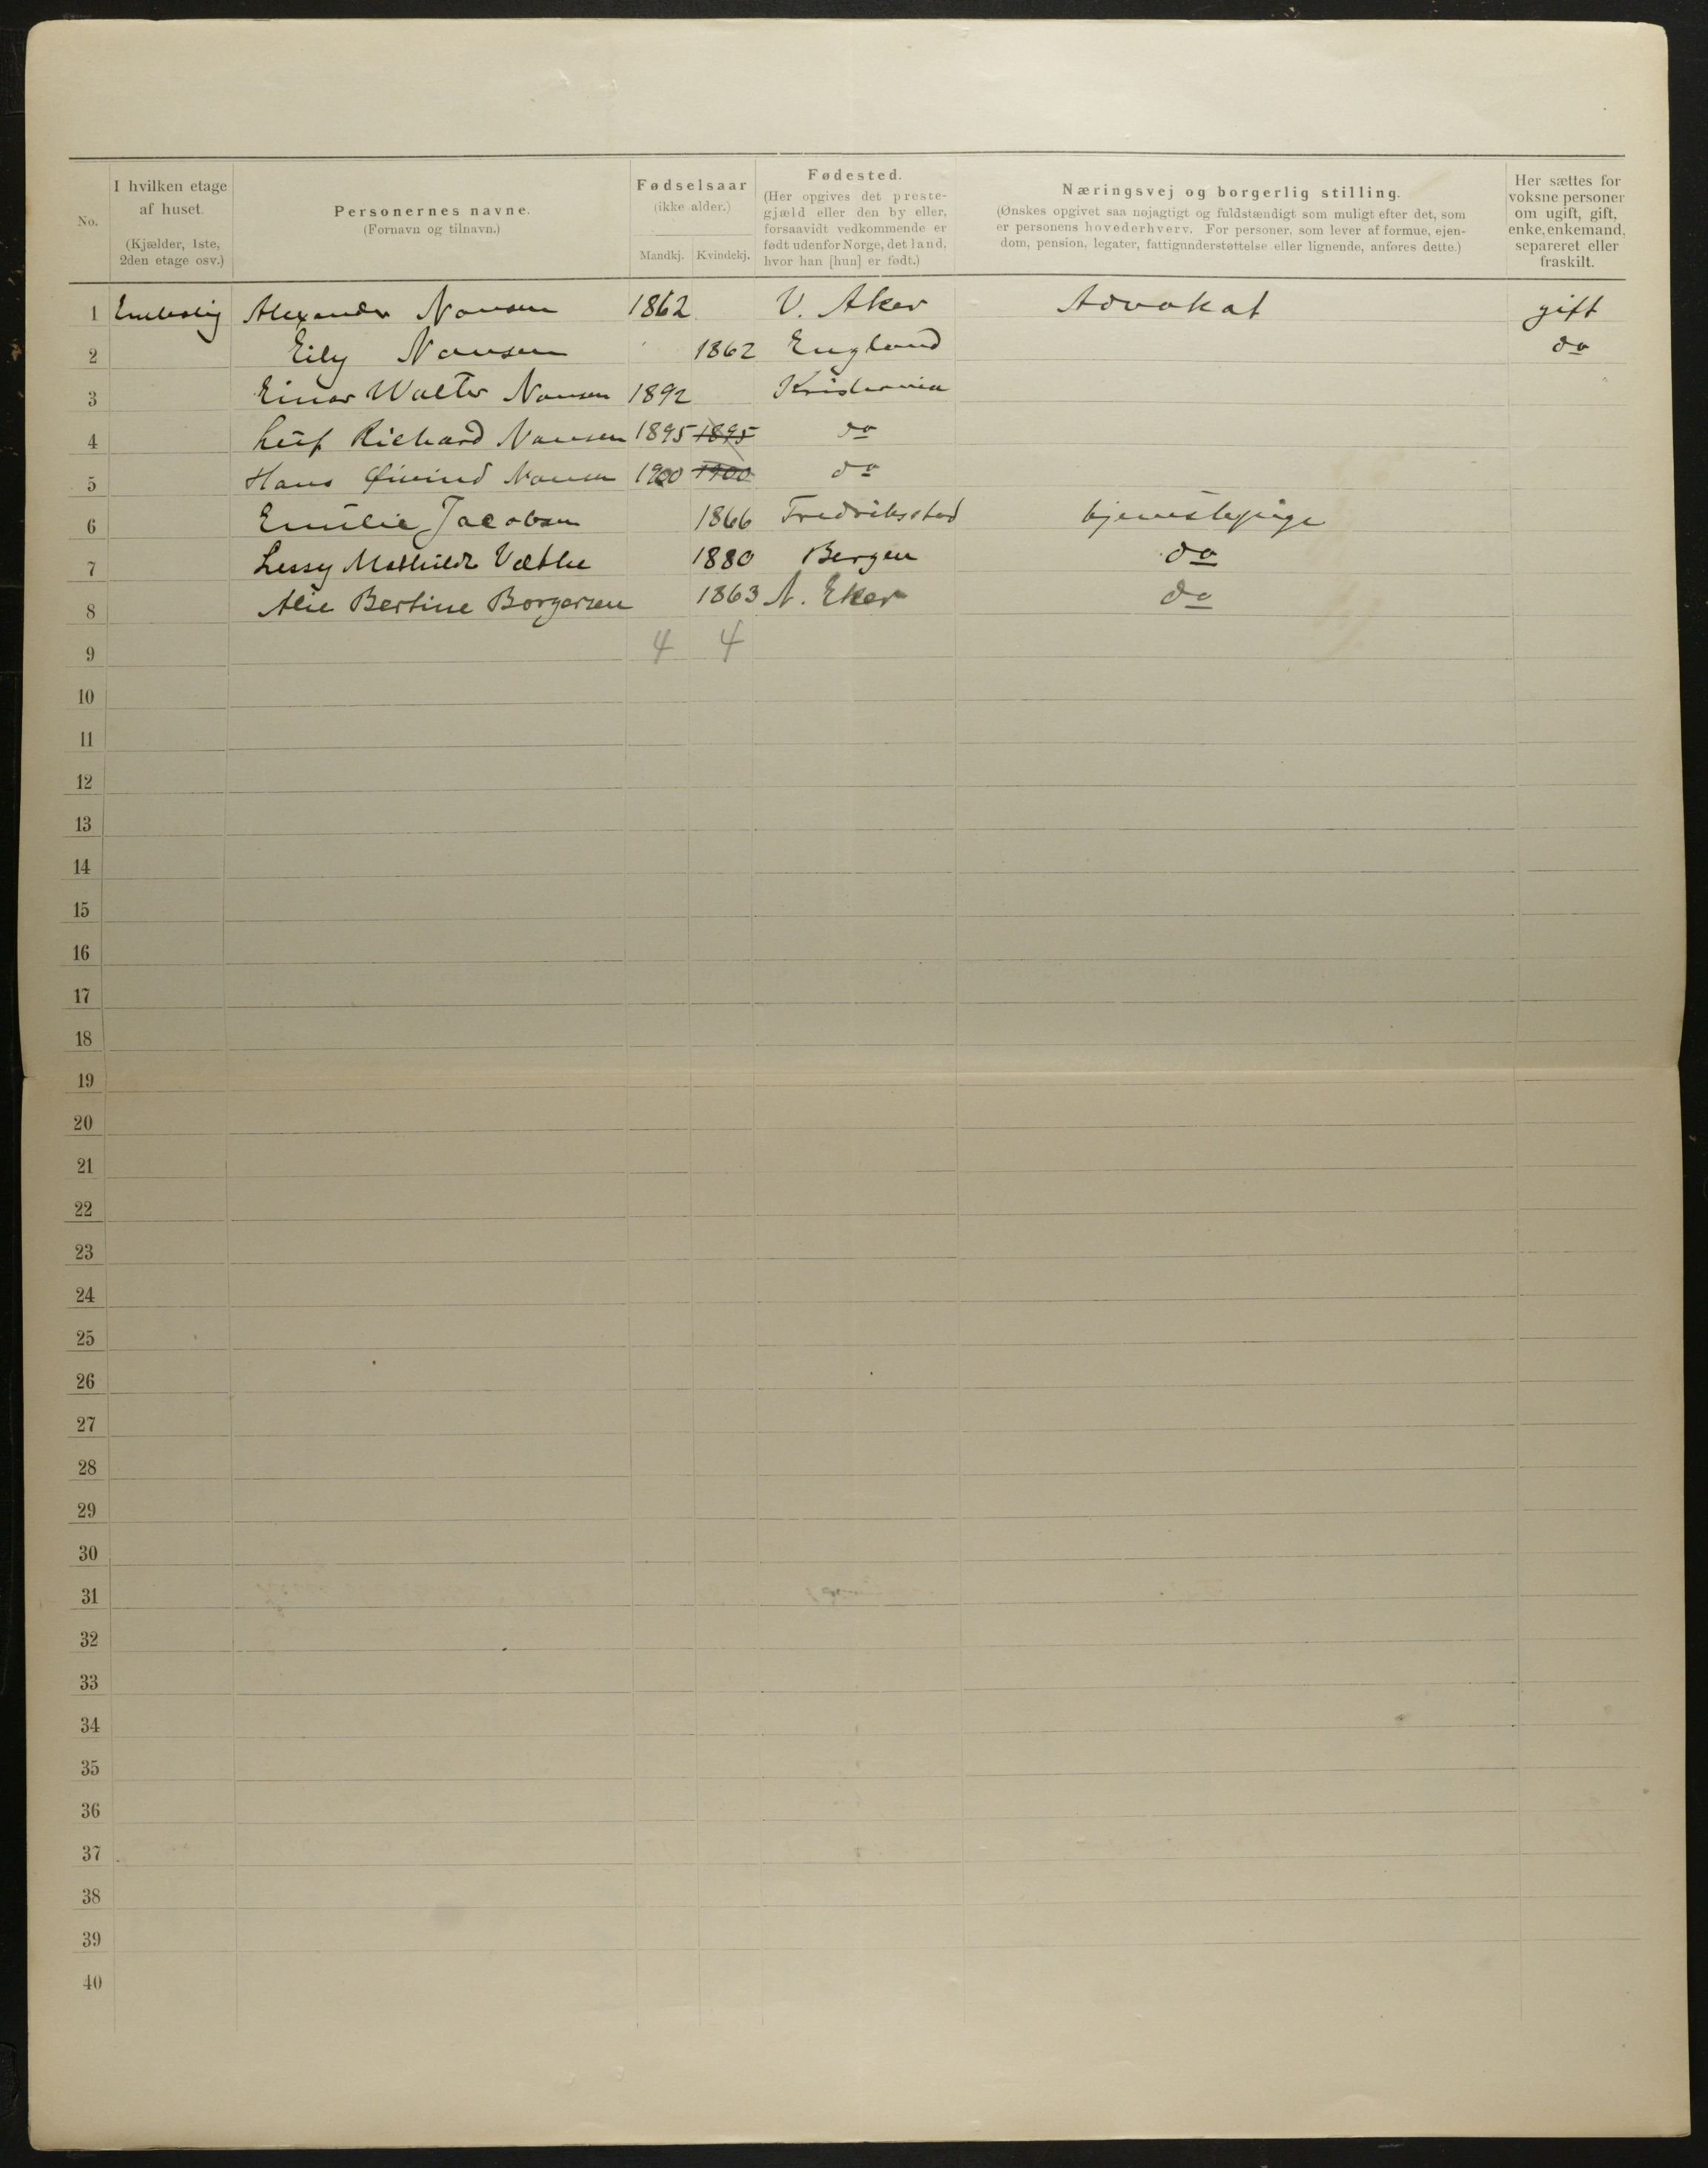 No.
I hvilken etage
af huset.
(Kjælder, 1ste,
2den etage osv.)
Personernes navne.
(Fornavn og tilnavn.)
Fødselsaar
(ikke alder.)
Mandkj. Kvindekj.
Fødested.
(Her opgives det preste-
gjæld eller den by eller,
forsaavidt vedkommende er
født udenfor Norge, det land,
hvor han [hun] er født.)
Næringsvej og borgerlig stilling.
(Ønskes opgivet saa nøjagtigt og fuldstændigt som muligt efter det, som
er personens hovederhverv. For personer, som lever af formue, ejen-
dom, pension, legater, fattigunderstøttelse eller lignende, anføres dette.)
Her sættes for
voksne personer
om ugift, gift,
enke, enkemand,
separeret eller
fraskilt.
1 Alexander Nansen 1862 V. Aker Advokat gift
2 Eily Nansen 1862 England do
3 Einar Walter Nansen 1892 Kristiania
4 Leif Richard Nansen 1895 1895 do
5 Hans Øivind Nansen 1900 1900 do
6 Emilie Jacobsen 1866 Fredriksstad tjenestepige
7 Lessy Mathilde 1880 Bergen do
8 Bertine Borgersen 1863 N. Eker do
9 4 4
10
11
12
13
14
15
16
17
18
19
20
21
22
23
24
25
26
27
28
29
30
31
32
33
34
35
36
37
38
39
40